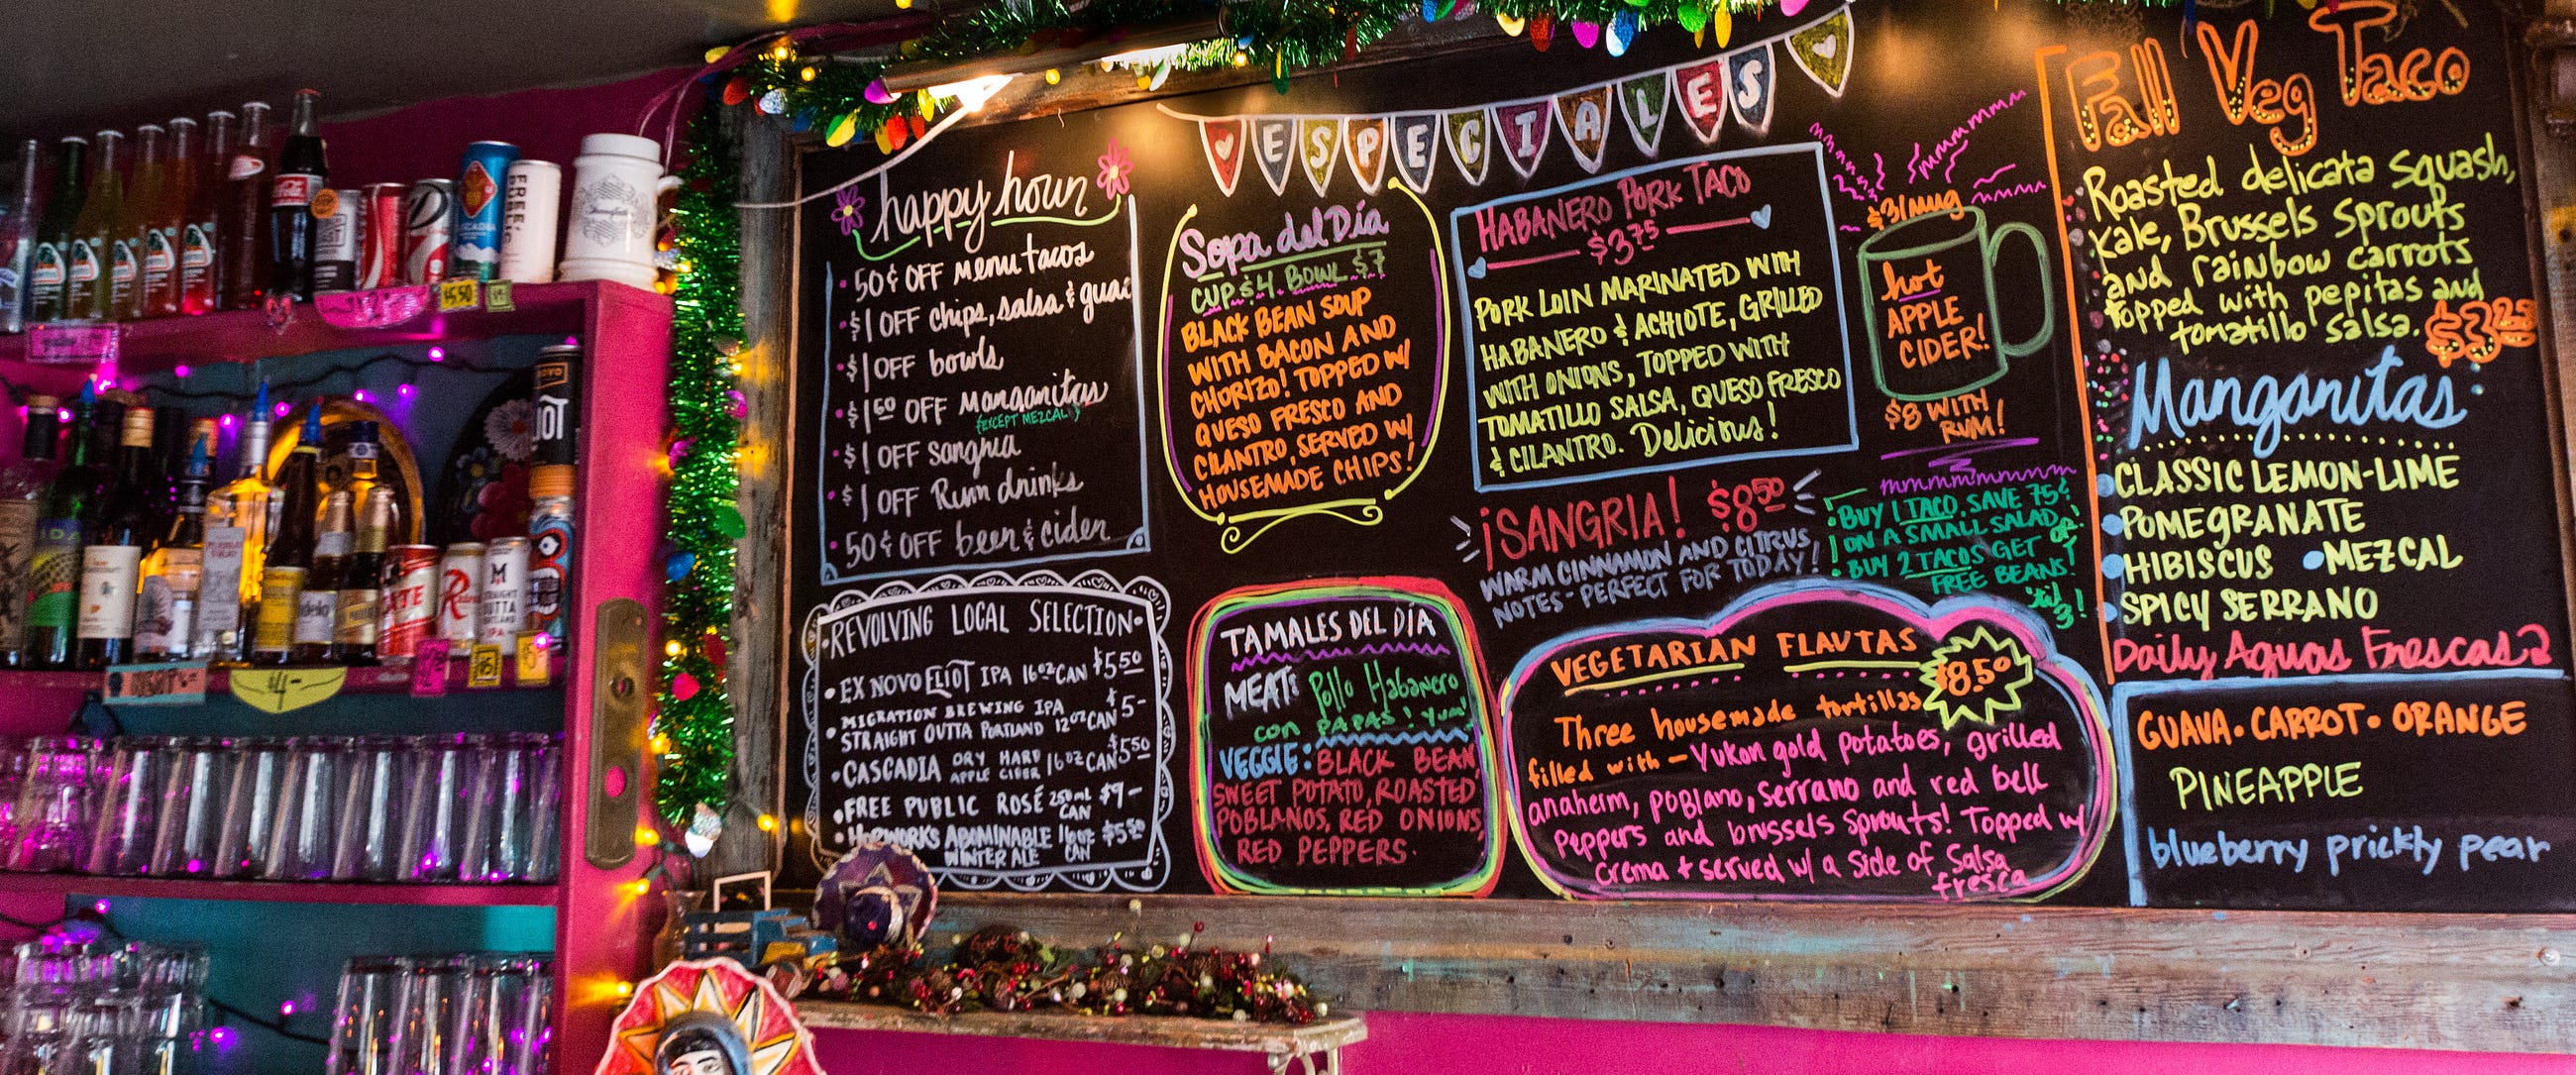 ESPECIALES
happy hour
50¢ OFF menu tacos
$1 OFF chips, salsa & guac
$1 OFF bowls
$1⁵⁰ OFF Margaritas
(EXCEPT MEZCAL)
$1 OFF sangria
$1 OFF Rum drinks
50¢ OFF beer & cider
REVOLVING LOCAL SELECTION
EX NOVO ELIOT IPA 16oz CAN $5⁵⁰
MIGRATION BREWING IPA
STRAIGHT OUTTA PORTLAND 12oz CAN $5-
CASCADIA DRY HARD
APPLE CIDER 16oz CAN $5⁵⁰
FREE PUBLIC ROSÉ 250mL
CAN $9-
HOPWORKS ABOMINABLE 16oz $5⁵⁰
WINTER ALE CAN
Sopa del Día
CUP $4 BOWL $7
BLACK BEAN SOUP
WITH BACON AND
CHORIZO! TOPPED W/
QUESO FRESCO AND
CILANTRO, SERVED W/
HOUSEMADE CHIPS!
TAMALES DEL DÍA
MEAT: Pollo Habanero
con PAPAS! Yum!
VEGGIE: BLACK BEAN,
SWEET POTATO, ROASTED
POBLANOS, RED ONIONS,
RED PEPPERS.
HABANERO PORK TACO
$3⁷⁵
PORK LOIN MARINATED WITH
HABANERO & ACHIOTE, GRILLED
WITH ONIONS, TOPPED WITH
TOMATILLO SALSA, QUESO FRESCO
& CILANTRO. Delicious!
$3/mug
hot
APPLE
CIDER!
$8 WITH
RUM!
¡SANGRIA! $8⁵⁰
WARM CINNAMON AND CITRUS
NOTES - PERFECT FOR TODAY!
BUY 1 TACO, SAVE 75¢
ON A SMALL SALAD, or
BUY 2 TACOS GET
FREE BEANS!
'til
3!
VEGETARIAN FLAUTAS
$8.50
Three housemade tortillas
filled with - Yukon gold potatoes, grilled
anaheim, poblano, serrano and red bell
peppers and brussels sprouts! Topped w/
crema + served w/ a side of salsa
fresca
Fall Veg Taco
Roasted delicata squash,
Kale, Brussels Sprouts
and rainbow carrots
topped with pepitas and
tomatillo salsa. $3²⁵
Margaritas
CLASSIC LEMON-LIME
POMEGRANATE
HIBISCUS • MEZCAL
SPICY SERRANO
Daily Aguas Frescas 2
GUAVA • CARROT • ORANGE
PINEAPPLE
blueberry prickly pear